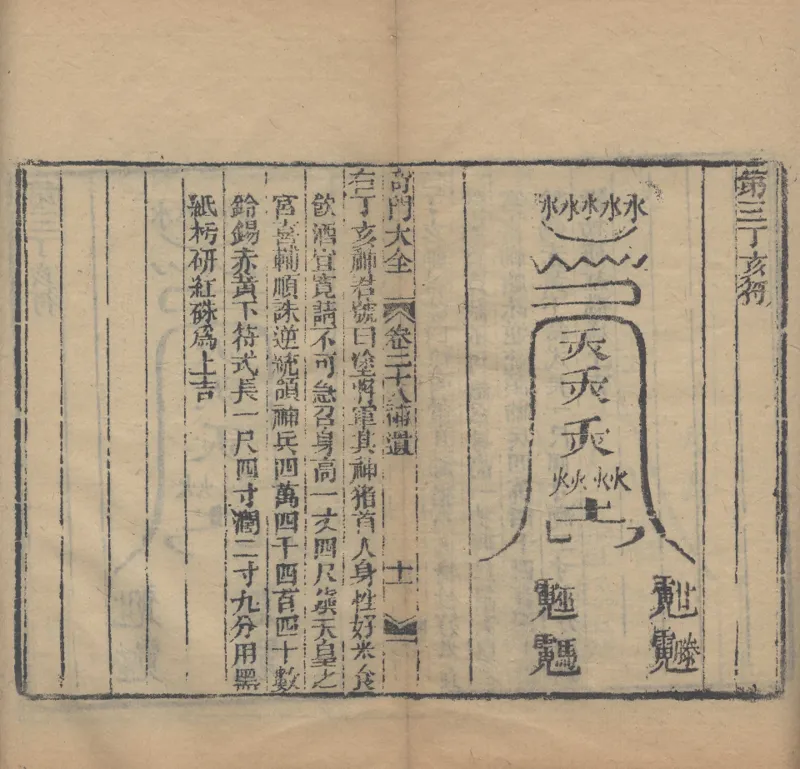 第三丁亥符
水水水水水
火火火火
土
奇門大全 卷二十八補遺 十一
右丁亥神君號曰軍其神猪首人身性好米食
飲酒宜寛請不可急召身高一丈四尺天皇之
宮喜輔順誅逆統領神兵四萬四千四百四十數
鈴錫赤黃下符式長一尺四寸濶二寸九分用黑
紙朽研紅硃爲上吉